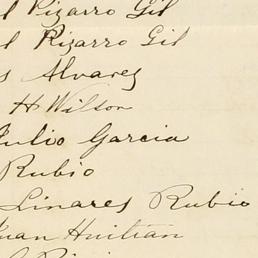 l Pizarro Gil
l Pizarro Gil
s Alvarez
H Wilson
Julio Garcia
Rubio
Linares Rubio
Juan Huitian